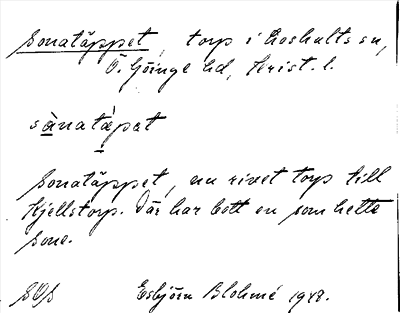 Sonatäppet, torp i Loshults sn,
Ö. Göinge hd, Krist. l.
sànatàpat
Sonatäppet, nu rivet torp till
Kjellstorp. Där har bott en som hette
Sone.
Esbjörn Blohmé 1948.